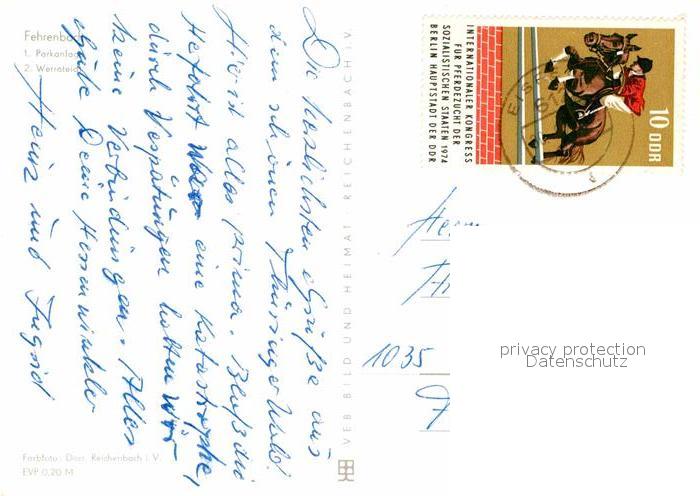 Fehrenbach
1. Parkanlage
2. Werrateich
Die herzlichsten Grüße aus
dem schönen Thüringer Wald!
Hier ist alles prima. Bloß die
Herfahrt war eine Katastrophe,
durch Verspätungen hatten wir
keine Verbindungen. Alles
Gute Deine Hessenwinkler
Heinz und Ingrid
Farbfoto: Darr, Reichenbach i. V.
EVP 0,20 M
VEB BILD UND HEIMAT · REICHENBACH i. V.
INTERNATIONALER KONGRESS
FÜR PFERDEZUCHT DER
SOZIALISTISCHEN STAATEN 1974
BERLIN HAUPTSTADT DER DDR
10 DDR
Herrn
1035
privacy protection
Datenschutz